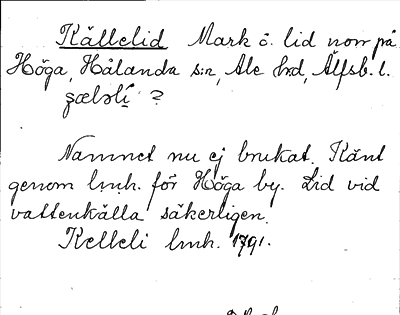 Källelid Mark o. lid norr på
Höga, Hålanda s:n, Ale hd, Älfsb. l.
ʂælɔlí ?
Namnet nu ej brukat. Känt
genom lmh. för Höga by. Lid vid
vattenkälla säkerligen.
Kelleli lmh. 1791.